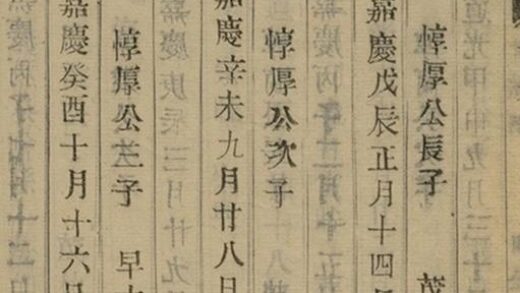 惇厚公長子 茂
嘉慶戊辰正月十四
惇厚公次子
嘉慶辛未九月廿八日
惇厚公三子 早
嘉慶癸酉十月十六日